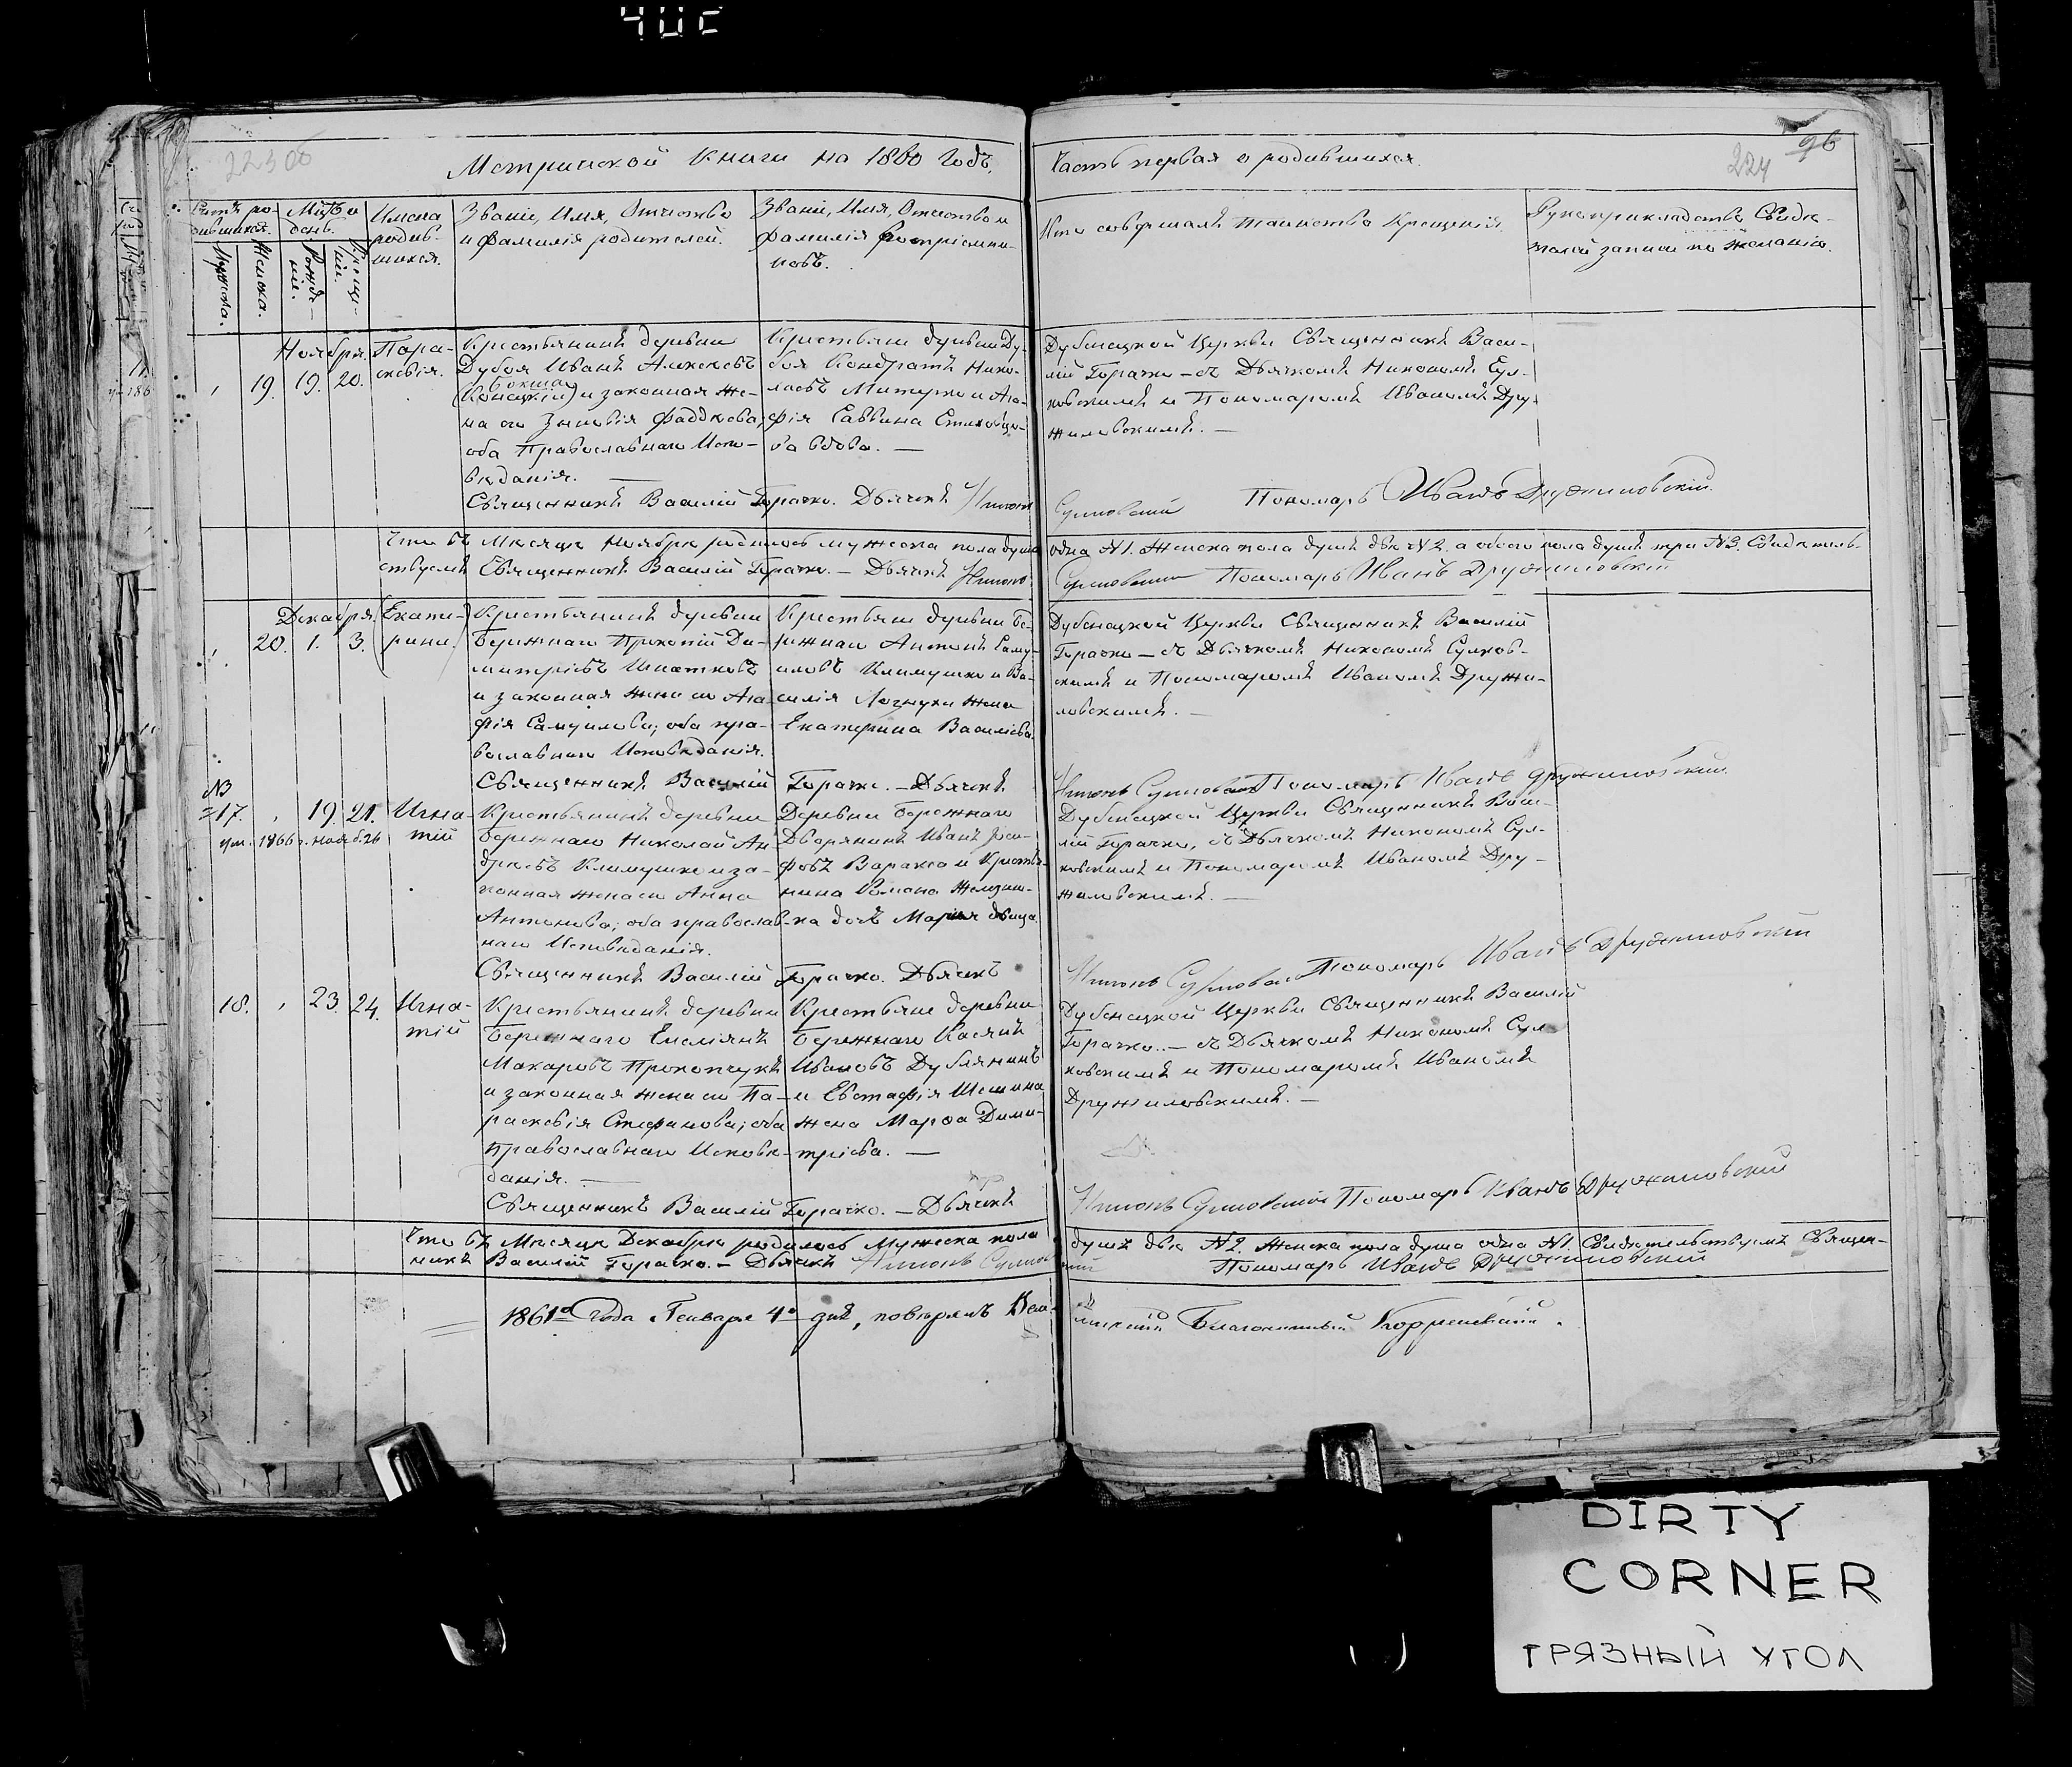 Метрической Книги на 1860 Годъ.
Часть первая о родившихся.
96
224
Счетъ ро-
дившихся.
Мужеска.
Женска.
Мцъ и
день.
Рожде-
нія.
Креще-
нія.
Имена
родив-
шихся.
Званіе, Имя, Отчество
и фамилія родителей.
Званіе, Имя, Отчество и
фамилія воспріемни-
ковъ.
Кто совершалъ таинство Крещенія.
Рукоприкладство Свиде-
телей записи по желанію.
Ноября
19. 19. 20.
Пара-
скевія.
Крестьянинъ деревни
Дубоя Иванъ Алексеевъ
и законная же-
на его Зиновія Фаддеева;
оба Православнаго Испо-
веданія. —
Крестьяне деревни Ду-
боя Кондратій Нико-
лаевъ и Ага-
фія Саввина
ва вдова. —
Дубенецкой Церкви Священникъ Васи-
лій Горачко — съ Дьячкомъ Никономъ Сул-
ковскимъ и Пономаремъ Иваномъ Дру-
жиловскимъ. —
Священникъ Василій Горачко. Дьячекъ Никонъ
Сулковскій Пономарь Иванъ Дружиловскій.
Что въ Месяце Ноябре родилось мужеска пола душа
одна №1. Женска пола душъ две №2. а обоего пола душъ три №3. Свидетель-
ствуемъ Священникъ Василій Горачко. — Дьячекъ Никонъ
Сулковскій Пономарь Иванъ Дружиловскій
Декабря
20. 1. 3.
Екате-
рина.
Крестьянинъ деревни
Бережнаго Прокопій Ди-
митріевъ Игнатковъ
и законная жена его Ага-
фія Самуилова; оба пра-
вославнаго Исповеданія.
Крестьяне деревни Бе-
режнаго Антоній Саму-
иловъ Климушко и Ва-
силія жена
Екатерина Василіева.
Дубенецкой Церкви Священникъ Василій
Горачко — съ Дьячкомъ Никономъ Сулков-
скимъ и Пономаремъ Иваномъ Дружи-
ловскимъ. —
Священникъ Василій Горачко. — Дьячекъ
Никонъ Сулковскій Пономарь Иванъ Дружиловскій
№3
17. 19. 21.
ум. 1866 г. нояб. 26
Игна-
тій
Крестьянинъ деревни
Бережнаго Николай Ан-
дреевъ Климушко и за-
конная жена его Анна
Антонова; оба православ-
наго Исповеданія.
Деревни Бережнаго
Дворянинъ Иванъ Іоси-
фовъВаракса и Крестья-
нина Романа
ка дочь Марія девица.
Дубенецкой Церкви Священникъ Васи-
лій Горачко, съ Дьячкомъ Никономъ Сул-
ковскимъ и Пономаремъ Иваномъ Дру-
жиловскимъ. —
Священникъ Василій Горачко. Дьячекъ
Никонъ Сулковскій Пономарь Иванъ Дружиловскій
18. 23. 24.
Игна-
тій
Крестьянинъ деревни
Бережнаго Емеліянъ
Макаровъ Прокопчукъ
и законная жена его Па-
раскевія Стефанова; оба
Православнаго Испове-
данія. —
Крестьяне деревни
Бережнаго Касянъ
Ивановъ Дублянинъ
и Евстафія Шешина
жена Марфа Дими-
тріева. —
Дубенецкой Церкви Священникъ Василій
Горачко. — съ Дьячкомъ Никономъ Сул-
ковскимъ и Пономаремъ Иваномъ
Дружиловскимъ. —
Священникъ Василій Горачко. — Дьячекъ
Никонъ Сулковскій Пономарь Иванъ Дружиловскій
Что въ Месяце Декабре родилось Мужеска пола
душъ две №2. Женска пола душа одна №1. Свидетельствуемъ Священ-
никъ Василій Горачко. — Дьячекъ Никонъ Сулковскій
Пономарь Иванъ Дружиловскій
1861го Года Генваря 4го дня, поверялъ
Благочинный
DIRTY
CORNER
ГРЯЗНЫЙ УГОЛ